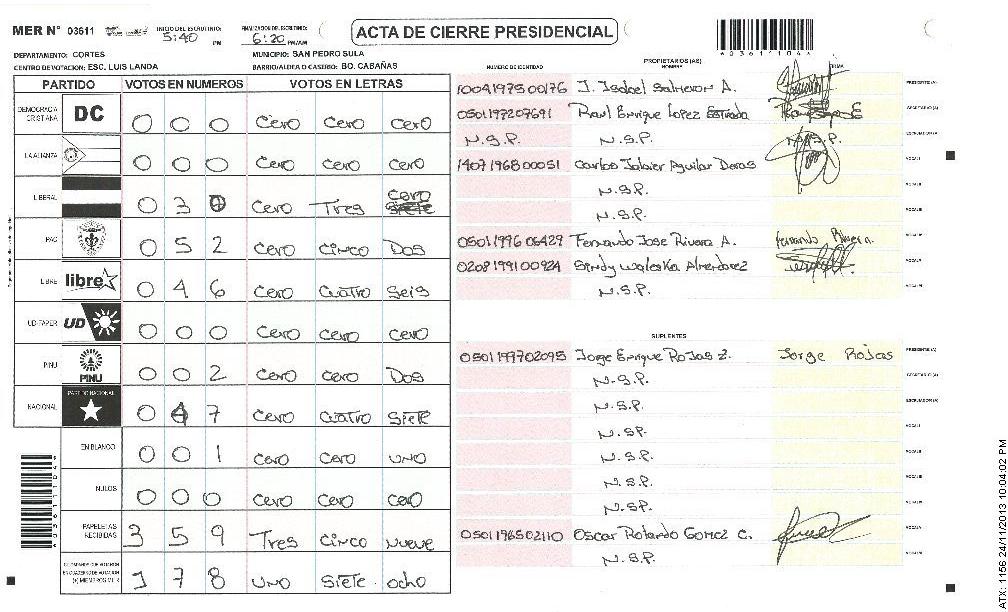 MER N° 03611 INICIO DEL ESCRUTINIO: 5:40 PM FINALIZACION DEL ESCRUTINIO: 6:20 PM/AM ACTA DE CIERRE PRESIDENCIAL
DEPARTAMENTO: CORTES MUNICIPIO: SAN PEDRO SULA
CENTRO DE VOTACION: ESC. LUIS LANDA BARRIO/ALDEA O CASERIO: BO. CABAÑAS
PARTIDO VOTOS EN NUMEROS VOTOS EN LETRAS
DEMOCRACIA CRISTIANA DC 0 0 0 Cero Cero Cero
LA ALIANZA 0 0 0 Cero Cero Cero
LIBERAL 0 3 0 Cero Tres Cero Siete
PAC 0 5 2 Cero Cinco Dos
LIBRE libre 0 4 6 Cero Cuatro Seis
UD-FAPER UD 0 0 0 Cero Cero Cero
PINU PINU 0 0 2 Cero Cero Dos
NACIONAL PARTIDO NACIONAL 0 4 7 Cero Cuatro Siete
EN BLANCO 0 0 1 Cero Cero Uno
NULOS 0 0 0 Cero Cero Cero
PAPELETAS RECIBIDAS 3 5 9 Tres Cinco Nueve
CIUDADANOS QUE VOTARON EN CUADERNO DE VOTACION (+) MIEMBROS MER 1 7 8 Uno Siete Ocho
0361104
PROPIETARIOS (AS)
NUMERO DE IDENTIDAD NOMBRE FIRMA
1004197500176 J. Isabel Salmeron A. PRESIDENTE (A)
0501197207691 Raul Enrique Lopez Estrada SECRETARIO (A)
N.S.P. N.S.P. N.S.P. ESCRUTADOR (A)
1407196800051 Carlos Javier Aguilar Deras VOCAL I
N.S.P.
N.S.P.
0501199606429 Fernando Jose Rivera A. Fernando Rivera
0208199100924 Sindy Waleska Almendarez
N.S.P.
SUPLENTES
0501197702095 Jorge Enrique Rojas Z. Jorge Rojas PRESIDENTE (A)
N.S.P. SECRETARIO (A)
N.S.P. ESCRUTADOR (A)
N.S.P. VOCAL I
N.S.P.
N.S.P.
N.S.P.
0501196502110 Oscar Rolando Gomez C.
N.S.P.
ATX: 1156 24/11/2013 10:04:02 PM